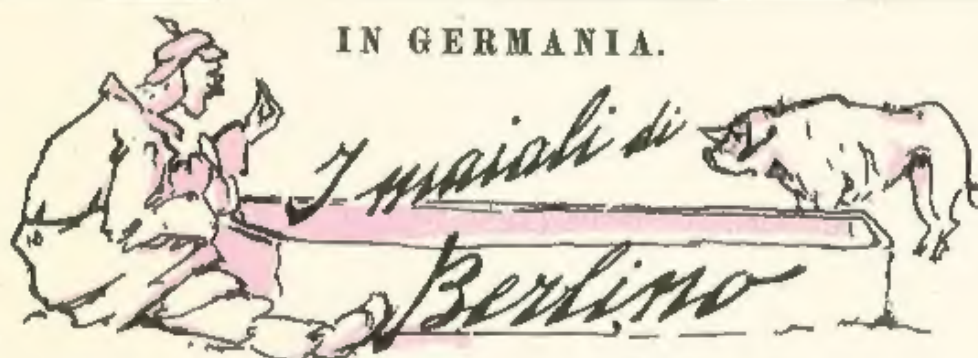 IN GERMANIA.
I maiali di
Berlino